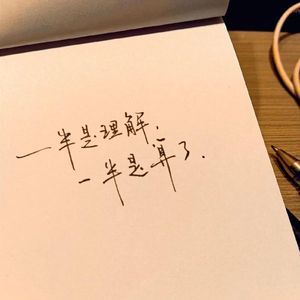 一半是理解；
一半是算了.